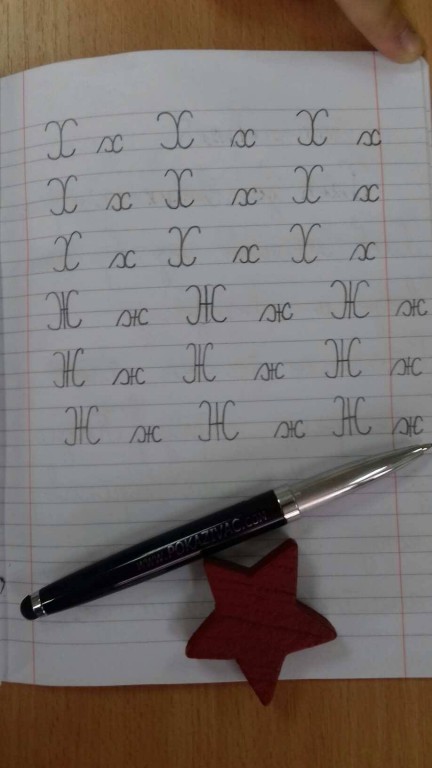 Х х Х х Х х
Х х Х х Х х
Х х Х х Х х
Ж ж Ж ж Ж ж
Ж ж Ж ж Ж ж
Ж ж Ж ж Ж ж
www.POKAZIVAC.com